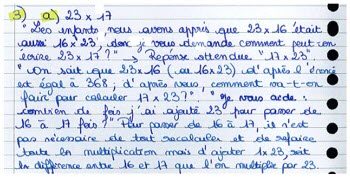 3) a) 23 x 17
"Les enfants, nous avons appris que 23 x 16 était
aussi 16 x 23, donc je vous demande comment peut-on
écrire 23 x 17 ?" → Réponse attendue "17 x 23"
"On sait que 23 x 16 (ou 16 x 23) d'après l'énoncé
est égal à 368 ; d'après vous, comment va-t-on
faire pour calculer 17 x 23 ?" "Je vous aide :
combien de fois j'ai ajouté 23 pour passer de
16 à 17 fois ?" Pour passer de 16 à 17, il n'est
pas nécessaire de tout recalculer et de refaire
toute la multiplication mais d'ajouter 1 x 23, soit
la différence entre 16 et 17 que l'on multiplie par 23.